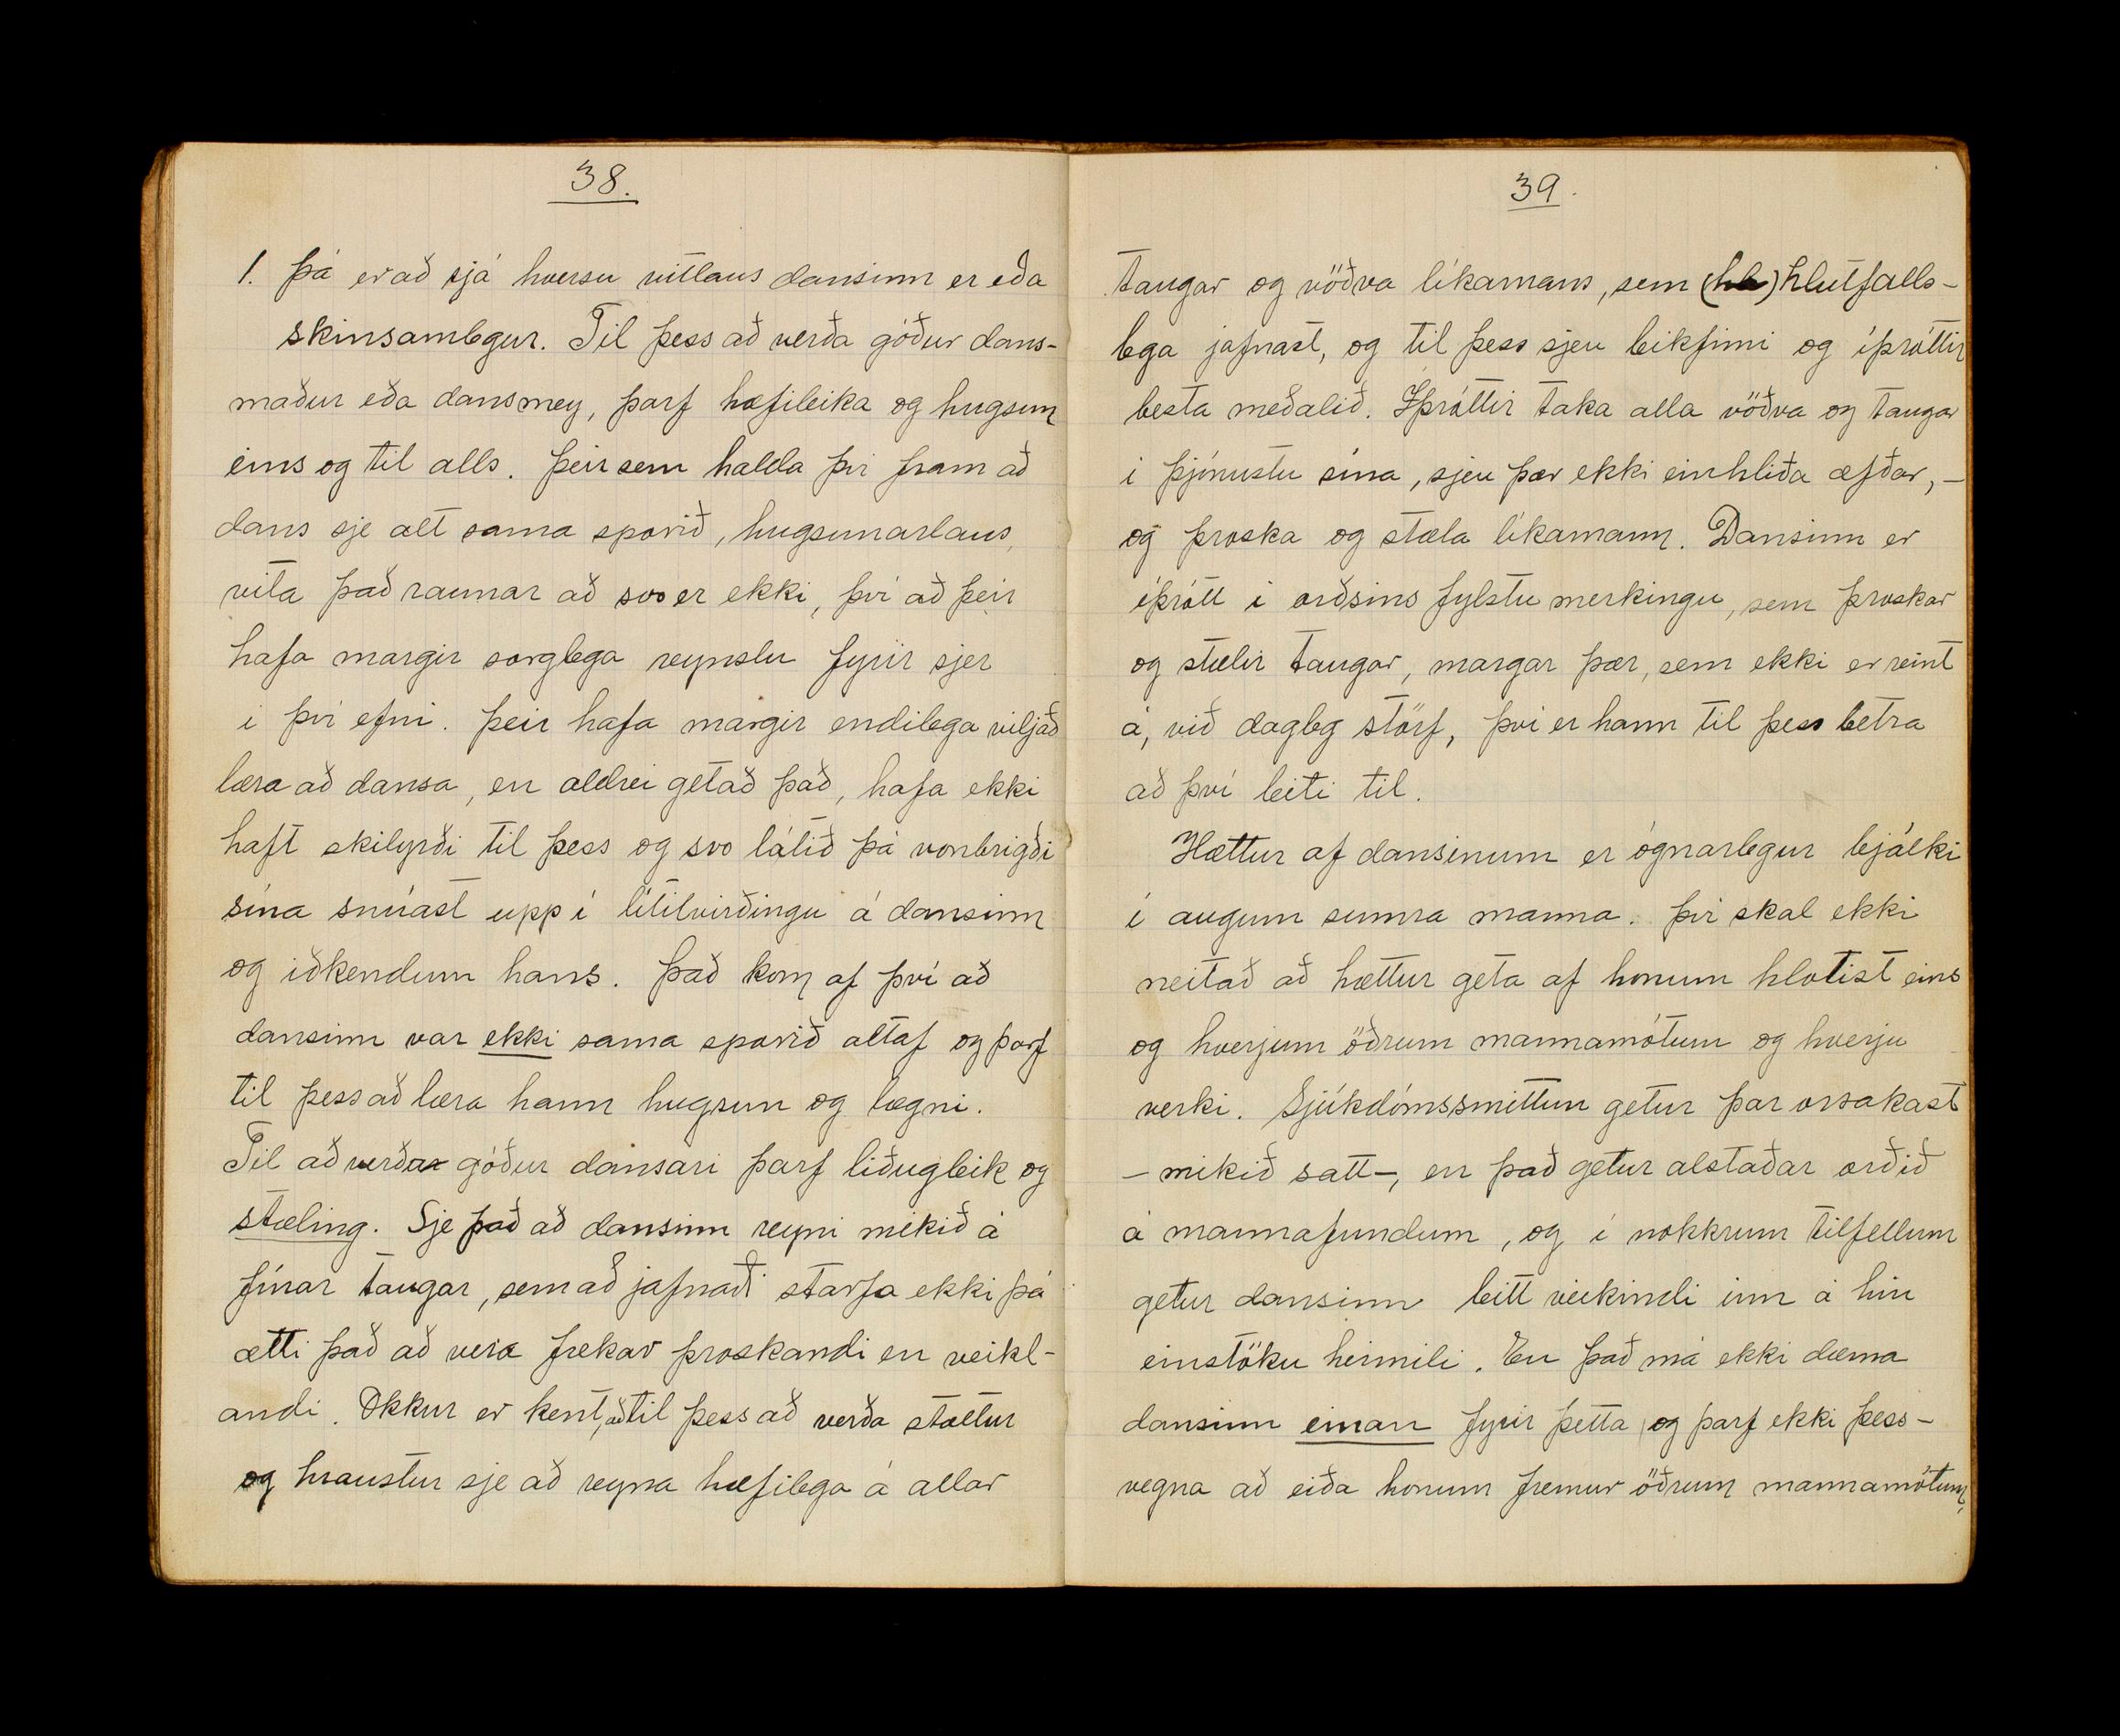 38.
1. Þá er að sjá hversu vitlaus dansinn er eða
skinsamlegur. Til þess að verða góður dans-
maður eða dansmey, þarf hæfileika og hugsun
eins og til alls. Þeir sem halda því fram að
dans sje alt sama sporið, hugsunarlaus,
vita það raunar að svo er ekki, því að þeir
hafa margir sorglega reynslu fyrir sjer
í því efni. Þeir hafa margir endilega viljað
læra að dansa, en aldrei getað það, hafa ekki
haft skilyrði til þess og svo látið þá vonbrigði
sína snúast upp í lítilvirðingu á dansinn
og iðkendum hans. Það kom af því að
dansinn var ekki sama sporið altaf og þarf
til þess að læra hann hugsun og lægni.
Til að verða góður dansari þarf liðugleik og
stæling. Sje það að dansinn reyni mikið á
fínar taugar, sem að jafnaði starfa ekki þá
ætti það að vera frekar þroskandi en veikl-
andi. Okkur er kent, að til þess að verða stæltur
og hraustur sje að reyna hæfilega á allar
39.
taugar og vöðva líkamans, sem (hl) hlutfalls-
lega jafnast, og til þess sjeu leikfimi og íþróttir
besta meðalið. Íþróttir taka alla vöðva og taugar
í þjónustu sína, sjeu þær ekki einhliða æfðar, -
og þroska og stæla líkamann. Dansinn er
íþrótt í orðsins fylstu merkingu, sem þroskar
og stælir taugar, margar þær, sem ekki er reint
á, við dagleg störf, því er hann til þess betra
að því leiti til.
Hættur af dansinum er ógnarlegur bjálki
í augum sumra manna. Því skal ekki
neitað að hættur geta af honum hlotist eins
og hverjum öðrum mannamótum og hverju
verki. Sjúkdómssmittun getur þar orsakast
- mikið satt -, en það getur alstaðar orðið
á mannafundum, og í nokkrum tilfellum
getur dansinn leitt veikindi inn á hin
einstöku heimili. En það má ekki dæma
dansinn einan fyrir þetta og þarf ekki þess-
vegna að eiða honum fremur öðrum mannamótum,